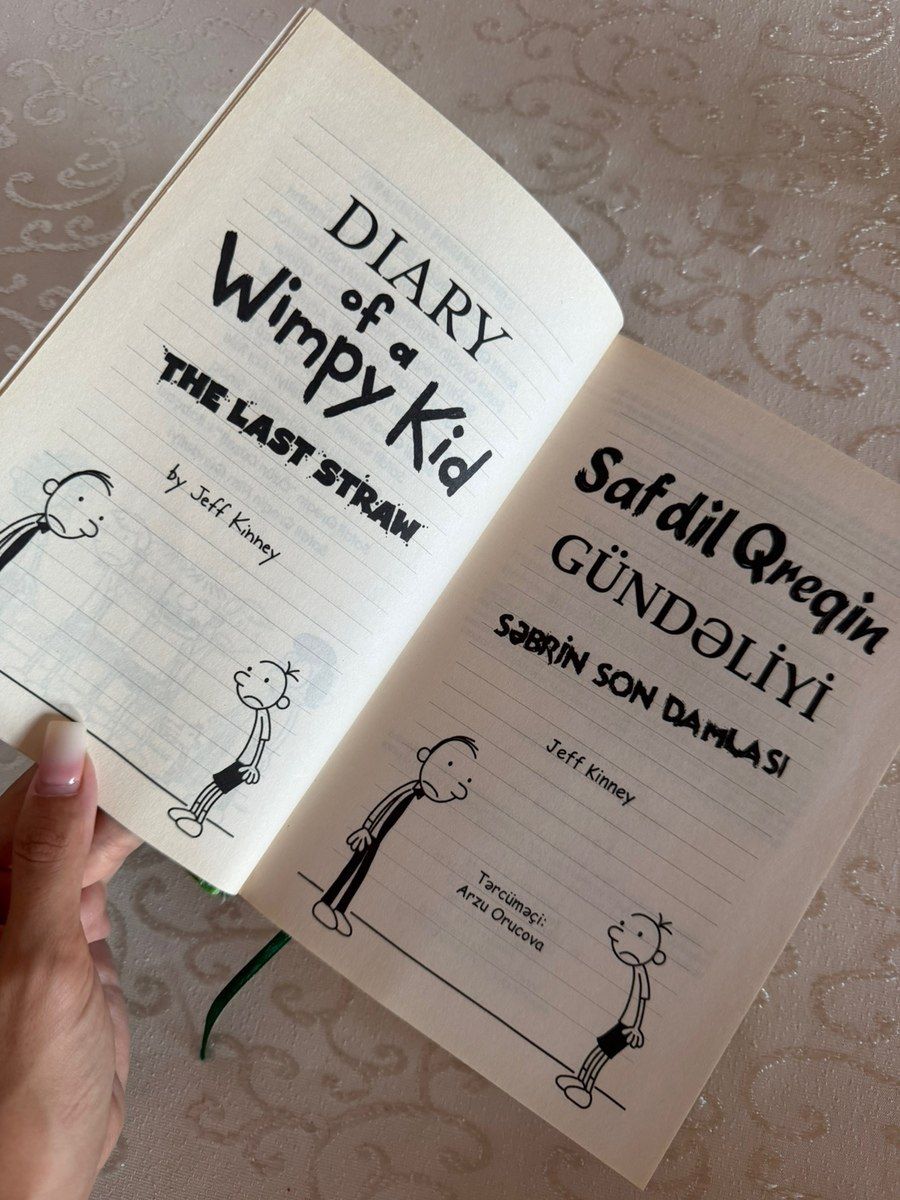 DIARY
of a
Wimpy Kid
THE LAST STRAW
by Jeff Kinney
Safdil Qreqin
GÜNDƏLİYİ
SƏBRİN SON DAMLASI
Jeff Kinney
Tərcüməçi:
Arzu Orucova